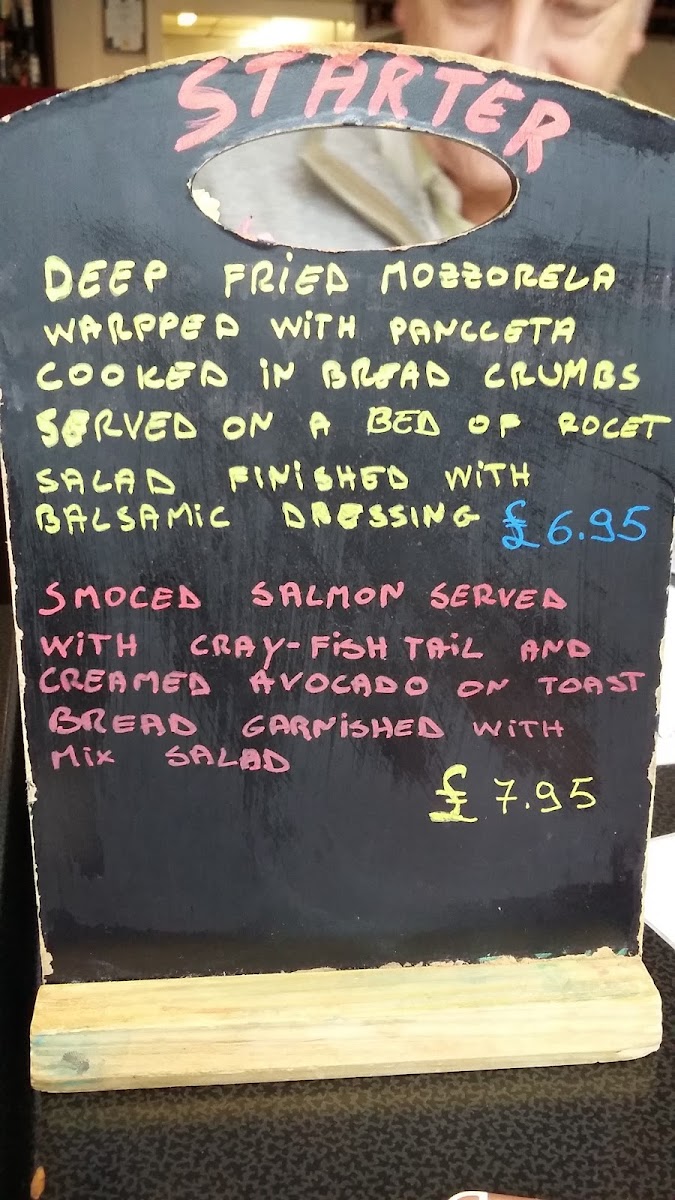 STARTER
DEEP FRIED MOZZORELA
WARPPED WITH PANCCETA
COOKED IN BREAD CRUMBS
SERVED ON A BED OF ROCET
SALAD FINISHED WITH
BALSAMIC DRESSING £6.95
SMOCED SALMON SERVED
WITH CRAY-FISH TAIL AND
CREAMED AVOCADO ON TOAST
BREAD GARNISHED WITH
MIX SALAD
£7.95